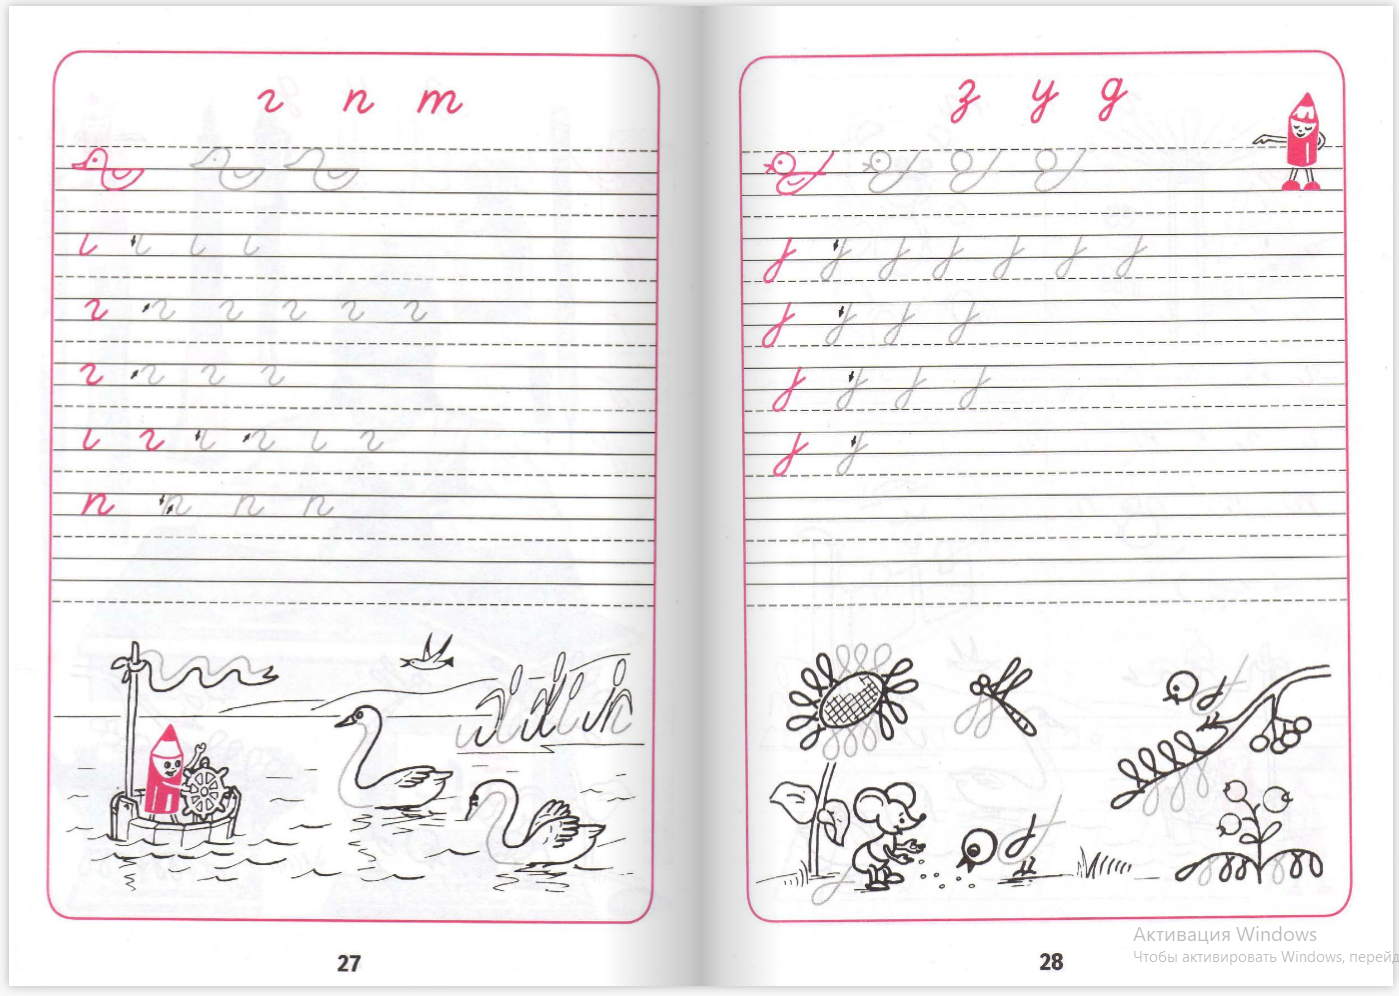 г п т
г г г г г г
г г г г
г г г
п п п п
27
з у д
28
Активация Windows
Чтобы активировать Windows, перейд